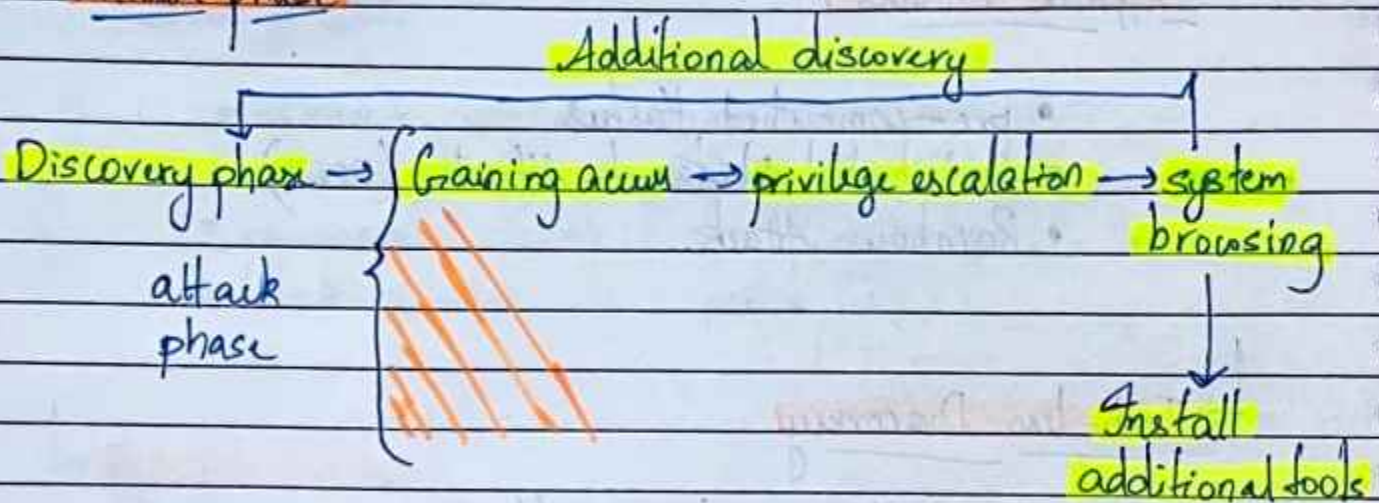 Additional discovery
Discovery phase → Gaining access → privilege escalation → system
browsing
attack
phase
Install
additional tools